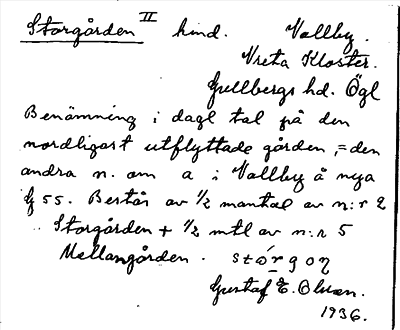 Storgården II hmd. Vallby.
Vreta Kloster.
Gullbergs hd. Ögl
Benämning i dagl tal på den
nordligast utflyttade gården, = den
andra n. om a i Vallby å nya
G 55. Består av 1/2 mantal av n:r 2
Storgården + 1/2 mtl av n:r 5
Mellangården. stórgoŋ
Gustaf E. Olsson.
1936.